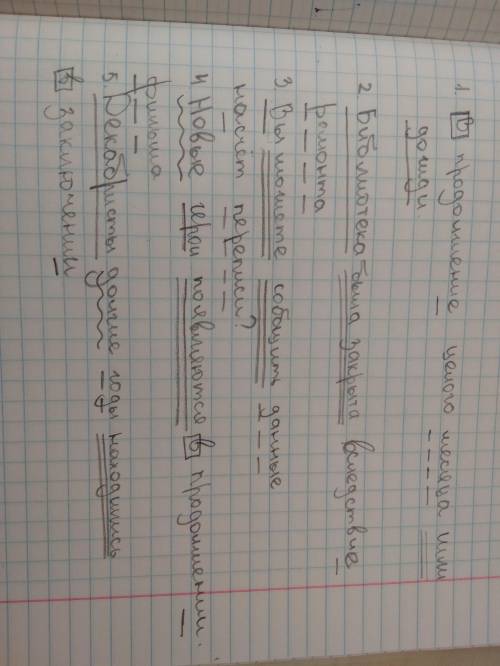 1 В продолжение целого месяца шли
дожди
2. Библиотека была закрыта вследствие
ремонта
3. Вы можете собщить данные
насчёт переписи?
4 Новые герои появляются в продолжении.
фильма
5. Декабристы долгие годы находились
в заключении